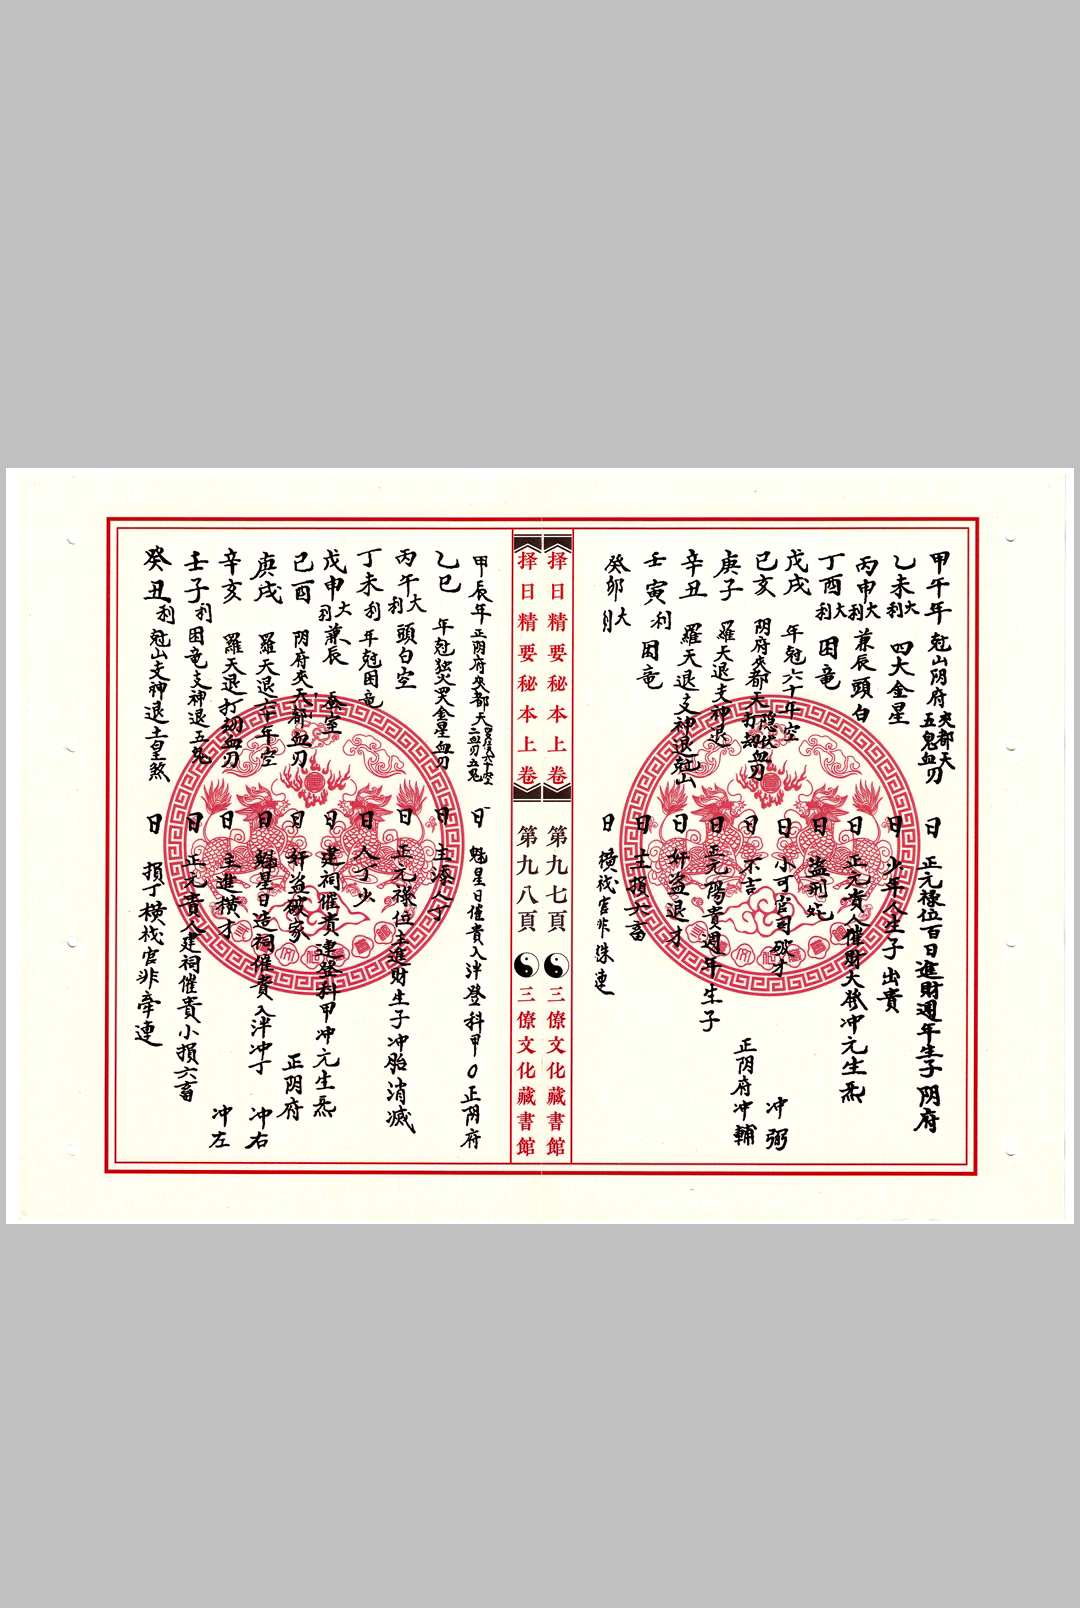 甲午年 尅山阴府 夾都天 五鬼血刃 日 正元祿位百日進財週年生子 阴府
乙未 大利 四大金星 日 少年人生子 出貴
丙申 大利 兼辰頭白 日 正元貴人催財大發冲元生炁
丁酉 大利 困竜 日 盗刑
戊戌 年尅六十年空 日 小可官司破才 冲弼
己亥 阴府夾都天 隐伏 打刼血刃 日 不吉 正阴府冲輔
庚子 羅天退支神退 日 正元陽貴週年生子
辛丑 羅天退支神退尅山 日 奸盗退才
壬寅 利 困竜 日 主損六畜
癸卯 大 日 横伐官非洙連
择日精要秘本上卷 第九七頁 三僚文化藏書館
择日精要秘本上卷 第九八頁 三僚文化藏書館
甲辰年 正阴府夾都天 三血刃五鬼 日 魁星日催貴入泮登科甲 正阴府
乙巳 年尅 金星血刃 日 主添人丁
丙午 大利 頭白空 日 正元祿位主進財生子冲胎消滅
丁未 利 年尅困竜 日 人丁少
戊申 大利 兼辰 蚕室 日 建祠催貴連登科甲冲元生炁
己酉 阴府夾天都血刃 日 奸盗破家 正阴府
庚戌 羅天退六十年空 日 魁星日造祠催貴入泮冲丁 冲右
辛亥 羅天退打刼血刃 日 主進横才 冲左
壬子 利 困竜支神退五鬼 日 正元貴人建祠催貴小損六畜
癸丑 利 尅山支神退土皇煞 日 損丁横伐官非牵連